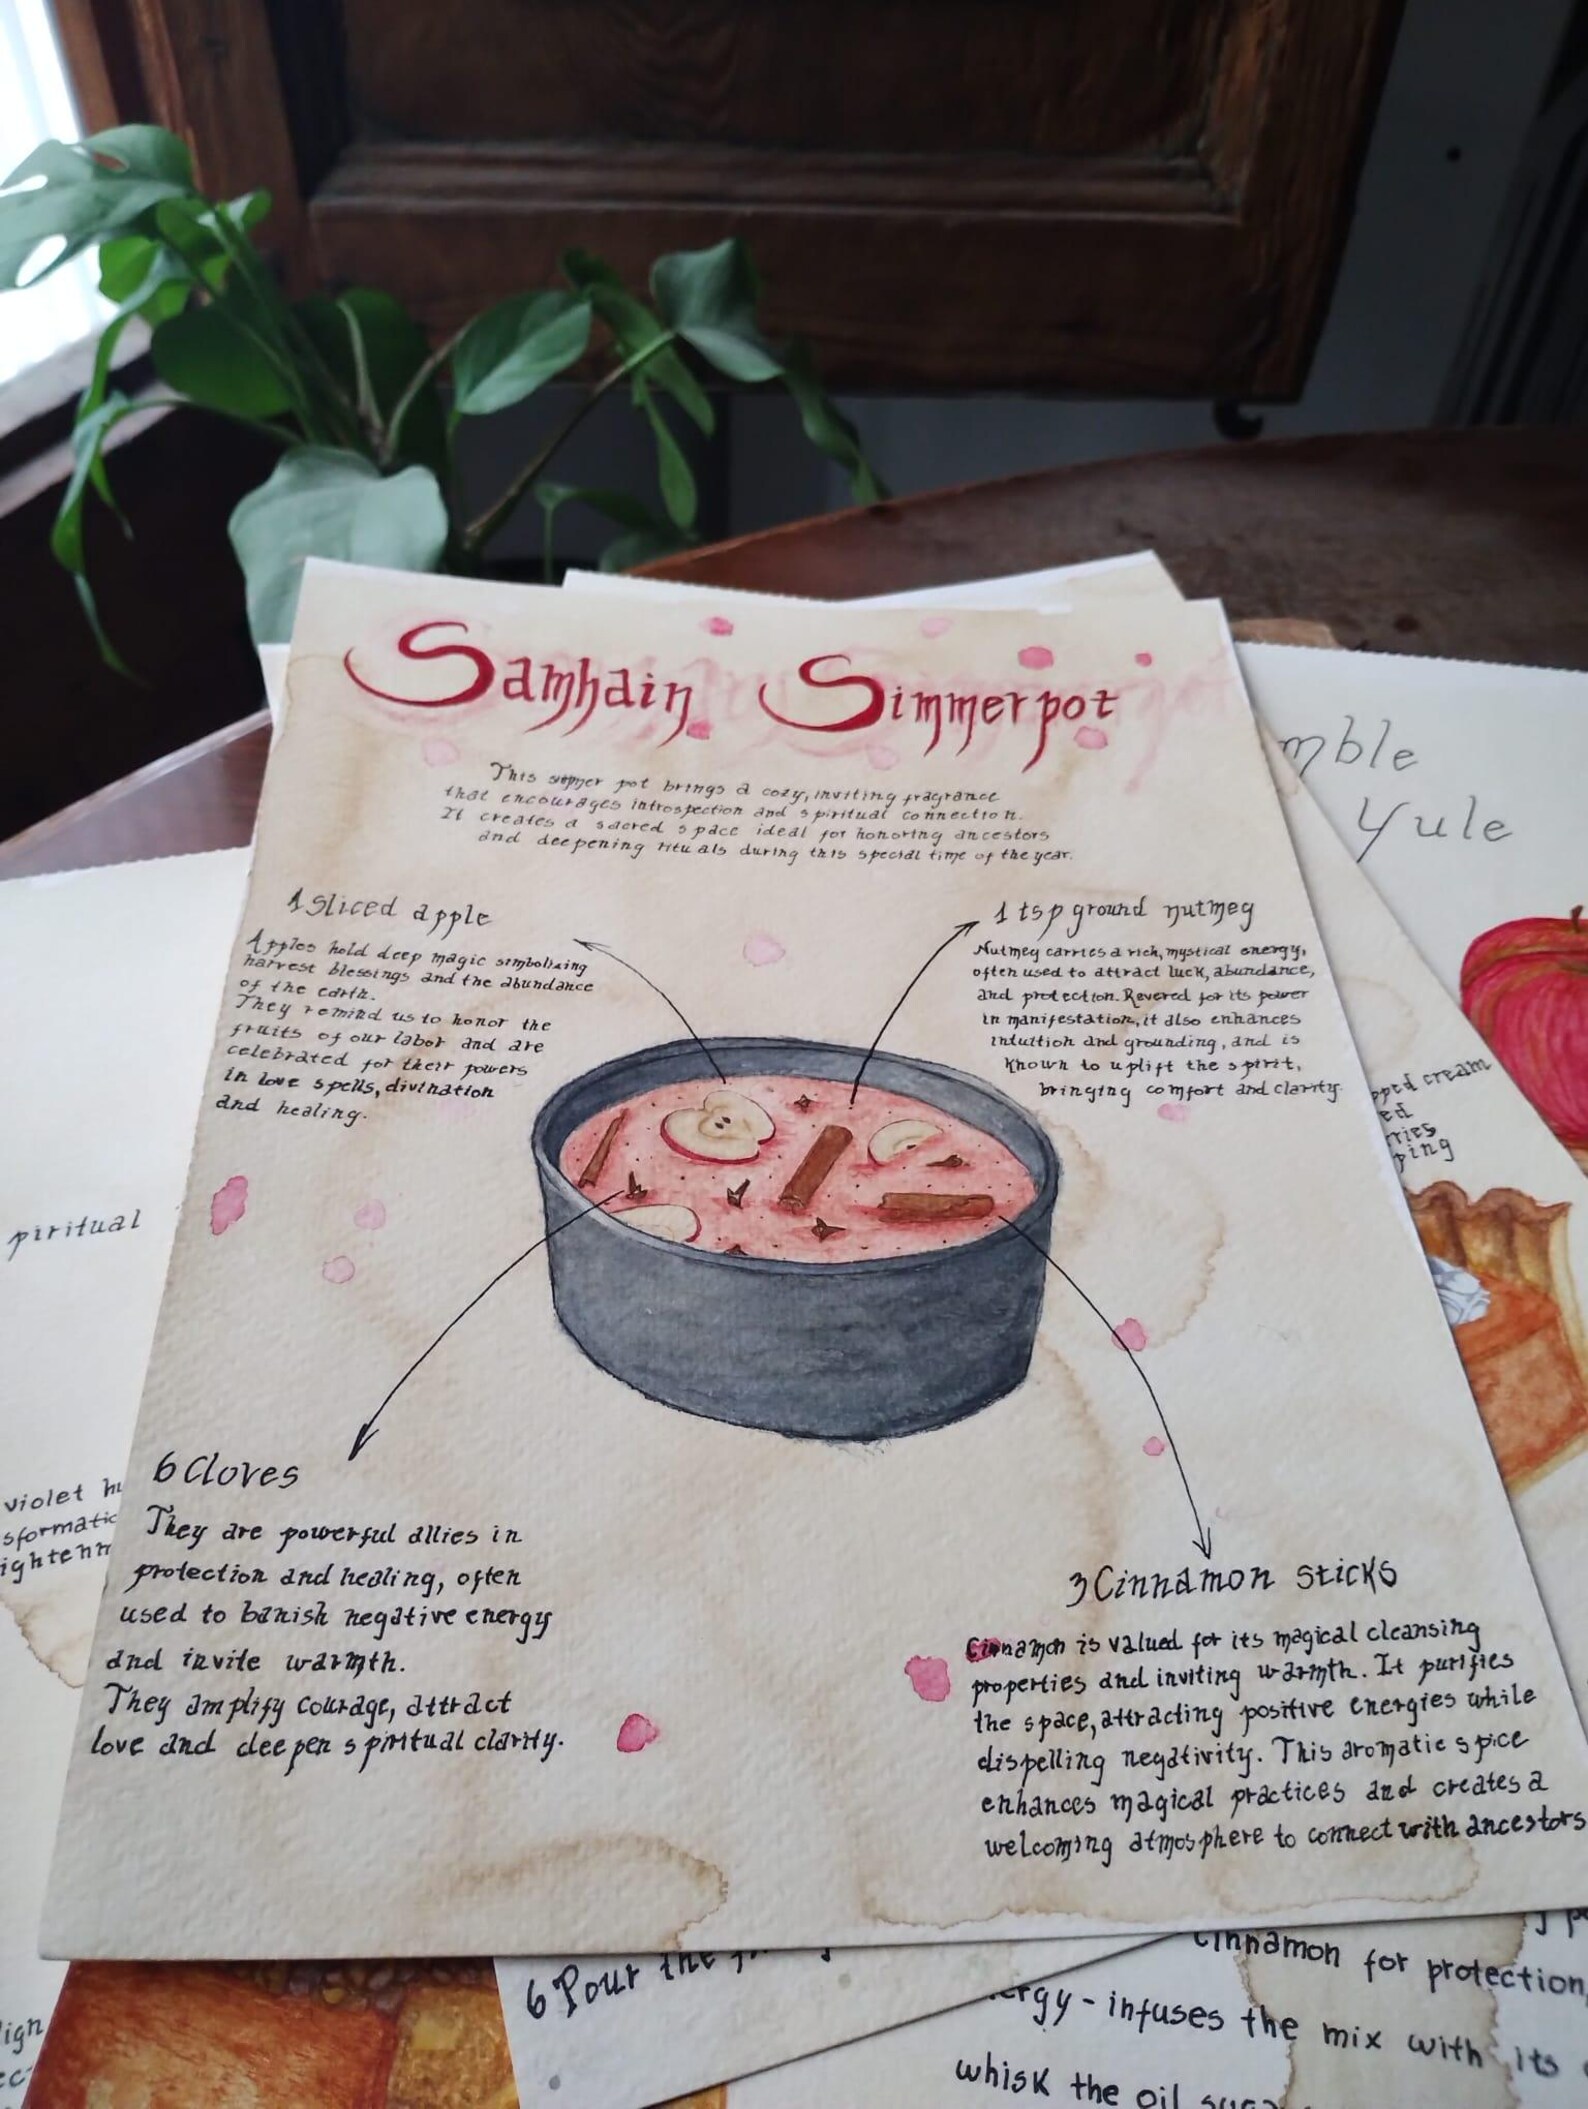 Samhain Simmerpot
This simmer pot brings a cozy, inviting fragrance
that encourages introspection and spiritual connection.
It creates a sacred space ideal for honoring ancestors
and deepening rituals during this special time of the year.
1 Sliced apple
Apples hold deep magic simbolizing
harvest blessings and the abundance
of the earth.
They remind us to honor the
fruits of our labor and are
celebrated for their powers
in love spells, divination
and healing.
1 tsp ground nutmeg
Nutmeg carries a rich, mystical energy,
often used to attract luck, abundance,
and protection. Revered for its power
in manifestation, it also enhances
intuition and grounding, and is
known to uplift the spirit,
bringing comfort and clarity.
6 Cloves
They are powerful allies in
protection and healing, often
used to banish negative energy
and invite warmth.
They amplify courage, attract
love and deepen spiritual clarity.
3 Cinnamon sticks
Cinnamon is valued for its magical cleansing
properties and inviting warmth. It purifies
the space, attracting positive energies while
dispelling negativity. This aromatic spice
enhances magical practices and creates a
welcoming atmosphere to connect with ancestors
mble
Yule
pped cream
ed
rries
ping
piritual
violet
sformatic
ightenm
6 Pour the
cinnamon for protection,
ergy - infuses the mix with its
whisk the oil